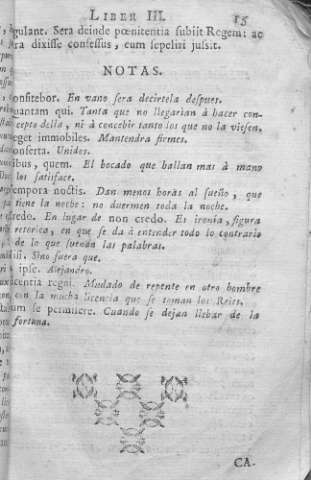 LIBER III. 15
gulane. Sera deinde pœnitentia subiit Regem: ac
ra dixisse confessus, eum sepeliri jussit.
NOTAS.
onfitebor. En vano sera decirtela despues.
uantam qui. Tanta que no llegarian à hacer con-
cepto della, ni à concebir tanto los que no la viesen.
eget immobiles. Mantendra firmes.
onserta. Unidos.
ibus, quem. El bocado que hallan mas à mano
los satisface.
tempora noctis. Dan menos horas al sueño, que
tiene la noche: no duermen toda la noche.
redo. En lugar de non credo. Es ironia, figura
retorica, en que se da à entender todo lo contrario
de lo que suenan las palabras.
si. Sino fuera que.
ipse. Alejandro.
centia regni. Mudado de repente en otro hombre
con la mucha licencia que se toman los Reies.
um se permittere. Cuando se dejan llebar de la
fortuna.
CA-